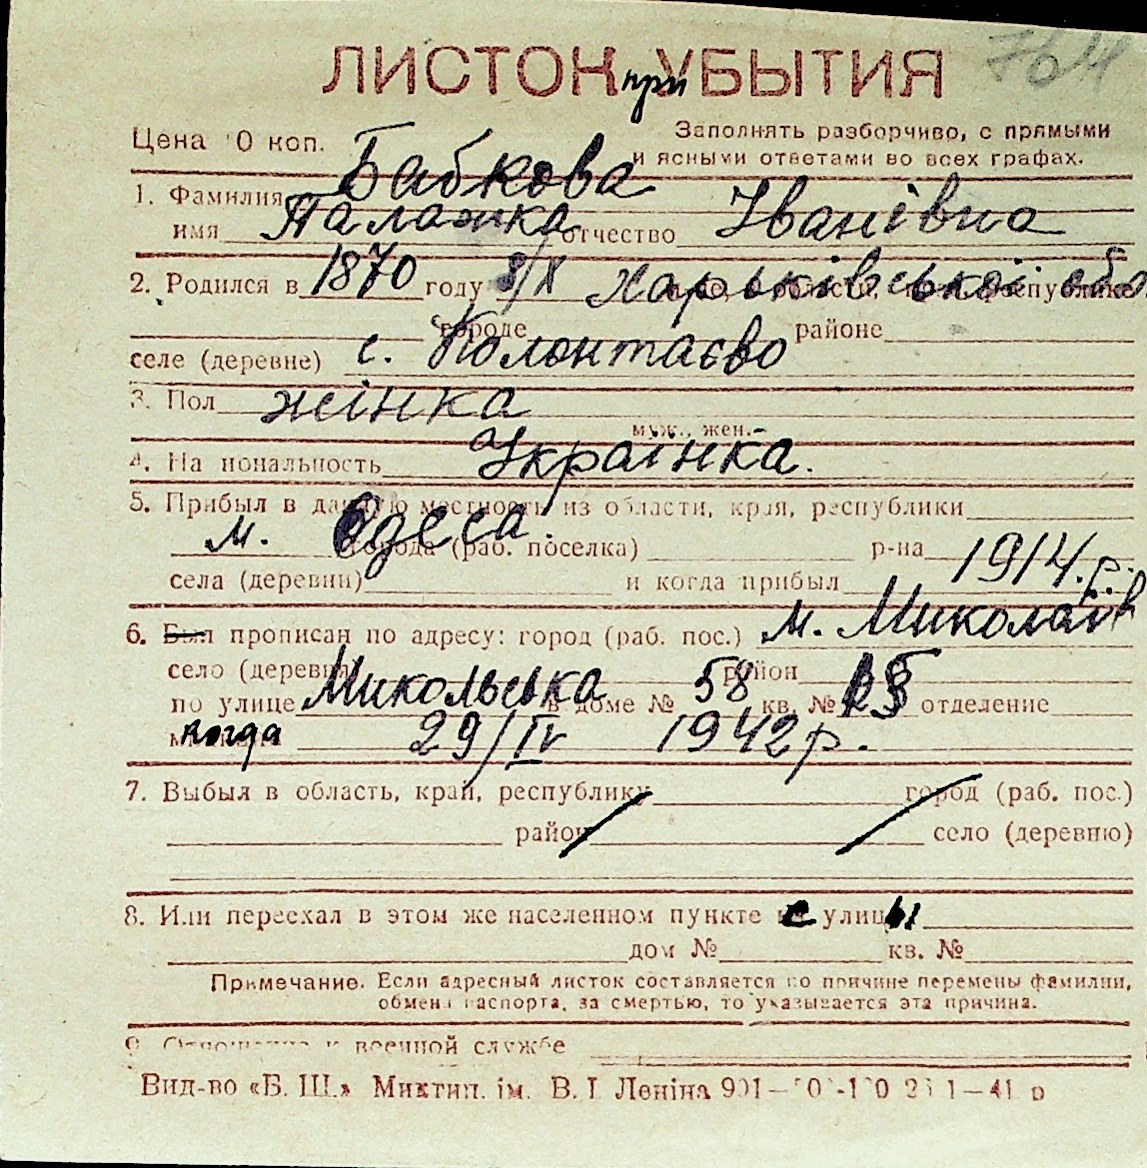 764
ЛИСТОК при УБЫТИЯ
Цена 10 коп. Заполнять разборчиво, с прямыми
и ясными ответами во всех графах.
1. Фамилия Бабкова
имя Палажка отчество Іванівна
2. Родился в 1870 году 8/X Харьківської обл
городе районе
селе (деревне) с. Колонтаєво
3. Пол жінка
муж., жен.
4. На иональность Українка.
5. Прибыл в данную местность из области, края, республики
м. Одеса. города (раб. поселка) р-на
села (деревни) и когда прибыл 1914 р.
6. Был прописан по адресу: город (раб. пос.) м. Миколаїв
село (деревня) район
по улице Микольська в доме № 58 кв. № отделение
когда 29/IV 1942 р.
7. Выбыл в область, край, республику город (раб. пос.)
район село (деревню)
8. Или переехал в этом же населенном пункте с улицы
дом № кв. №
Примечание. Если адресный листок составляется по причине перемены фамилии,
обмена паспорта, за смертью, то указывается эта причина.
9. Отношение к военной службе
Вид-во «Б. Ш.» Миктип. ім. В. І. Леніна